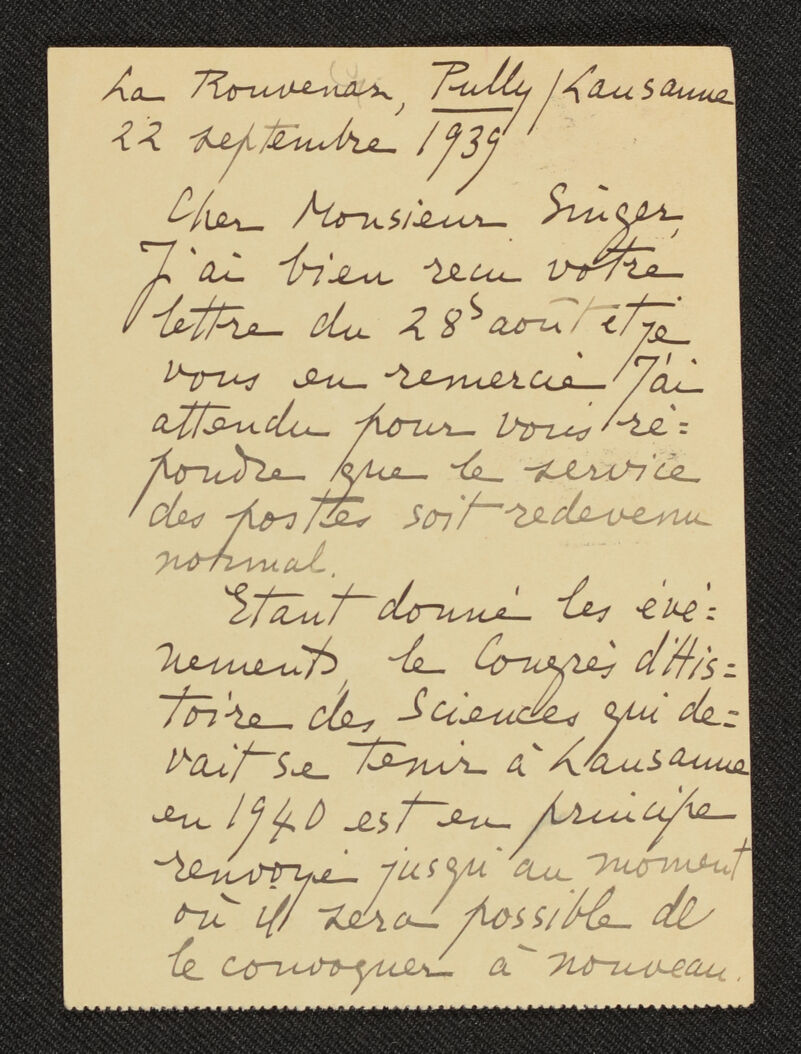 La Rouvenaz, Pully / Lausanne
22 septembre 1939
Cher Monsieur Singer,
J'ai bien recu votre
lettre du 28 août et je
vous en remercie J'ai
attendu pour vous ré=
pondre que le service
des postes soit redevenu
normal.
Etant donné les évé=
nements, le Congrès d'His=
toire des Sciences qui de=
vait se tenir à Lausanne
en 1940 est en principe
renvoyé jusqu'au moment
où il sera possible de
le convoquer à nouveau.